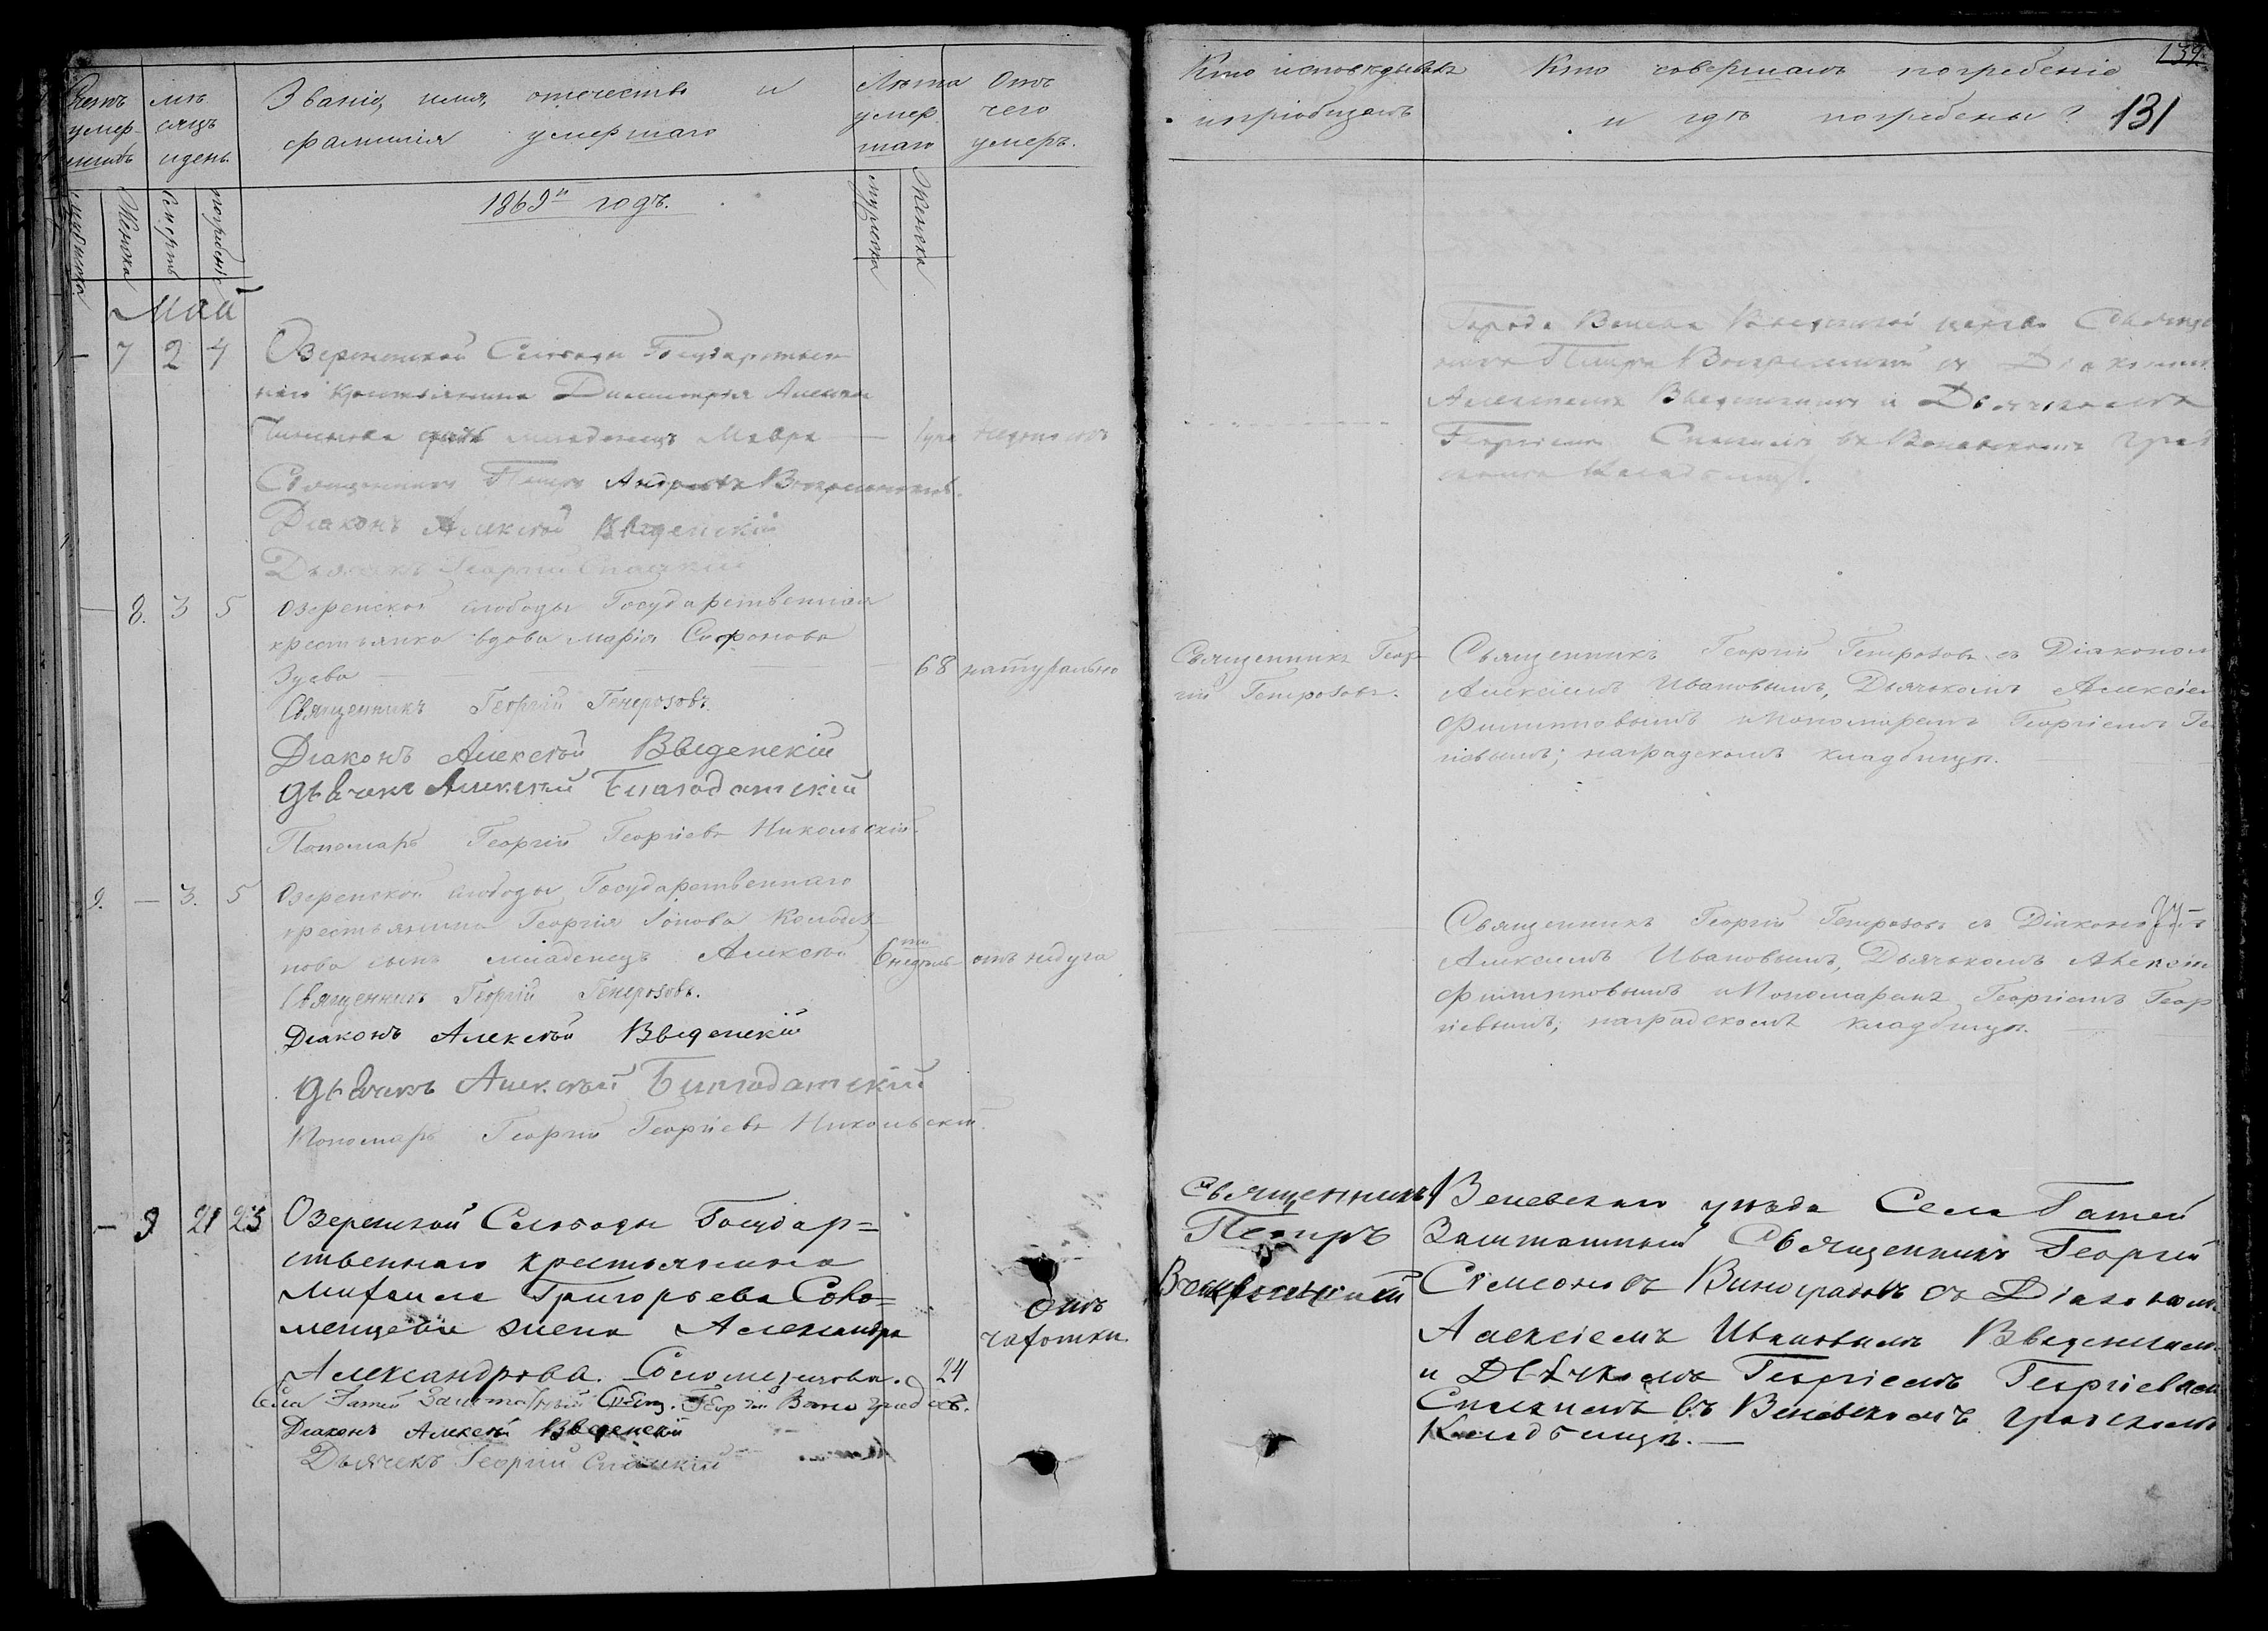 Счетъ умер-
шихъ
мѣ
сяцъ
и день
Званіе, имя, отечество и
фамилія умершаго
Лѣта
умер
шаго
Отъ
чего
умеръ.
Мужеска
Женска
Смерть
погребенія
1869й годъ.
Мужеска
Женска
Май
— 7 2 4 Озеренской Слободы Государствен
наго крестьянина Димитрія
младенецъ Мавра
Священникъ Петръ Андреевъ Воскресенскій.
Діаконъ Алексѣй Введенскій
Дьячекъ Георгій Спасскій
— 8. 3 5 Озеренской слободы Государственная
крестьянка вдова Марія Сафонова
Зуева — 68 натурально
Священникъ Георгій Генерозовъ.
Діаконъ Алексѣй Введенскій
Дьячекъ Алексѣй Благодатскій
Пономарь Георгій Георгіевъ Никольскій.
9. — 3. 5 Озеренской слободы Государственнаго
крестьянина Георгія Іонова
нова сынъ младенецъ Алексѣй 6ти недѣль отъ недуга
Священникъ Георгій Генерозовъ.
Діаконъ Алексѣй Введенскій
Дьячекъ Алексѣй Благодатскій
Пономарь Георгій Георгіевъ Никольскій.
— 9 21 23 Озеренской Слободы Государ=
ственнаго крестьянина
Михаила Григорьева Соло=
жена Александра
Александрова. 24
отъ
чахотки.
Села Гатей Заштатный Свящ. Георгій Виноградовъ.
Діаконъ Алексѣй Введенскій
Дьячекъ Георгій Спасскій
Кто исповѣдывалъ
и пріобщалъ
Кто совершалъ погребеніе
и гдѣ погребены?
139
131
Города Венева Введенской церкви Священ
никъ Петръ Воскресенскій съ Діакономъ
Алексѣемъ Введенскимъ и Дьячкомъ
Георгіемъ Спасскимъ въ Веневскомъ град
скомъ кладбищѣ.
Священникъ Геор-
гій Генерозовъ.
Священникъ Георгій Генерозовъ съ Діакономъ
Алексіемъ Ивановымъ, Дьячкомъ Алексіем
Филипповымъ и Пономаремъ Георгіемъ Ге
гіевымъ; на градскомъ кладбищѣ.
Священникъ Георгій Генерозовъ съ Діакономъ
Алексіемъ Ивановымъ, Дьячкомъ Алексѣ
Филипповымъ и Пономаремъ Георгіемъ Геор
гіевымъ; на градскомъ кладбищѣ.
Священникъ
Петръ
Воскресенскій
Веневскаго уѣзда Села Гатей
Заштатный Священникъ Георгій
Симеоновъ Виноградовъ съ Діакономъ
Алексіемъ Ивановымъ Введенскимъ
и Дьячкомъ Георгіемъ Георгіевымъ
Спасскимъ въ Веневскомъ градскомъ
Кладбищѣ. —